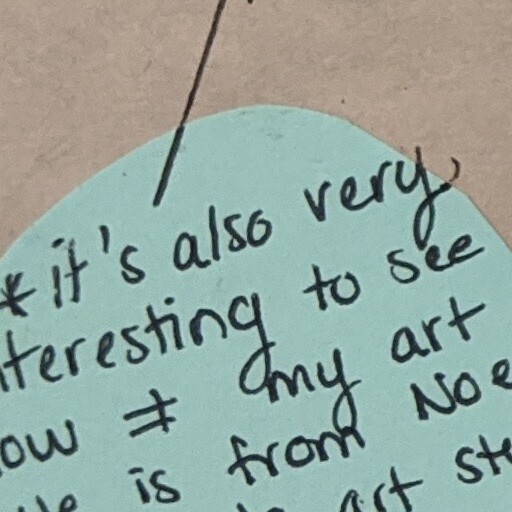 * it's also very
nteresting to see
ow ≠ my art
is from Noe
art st